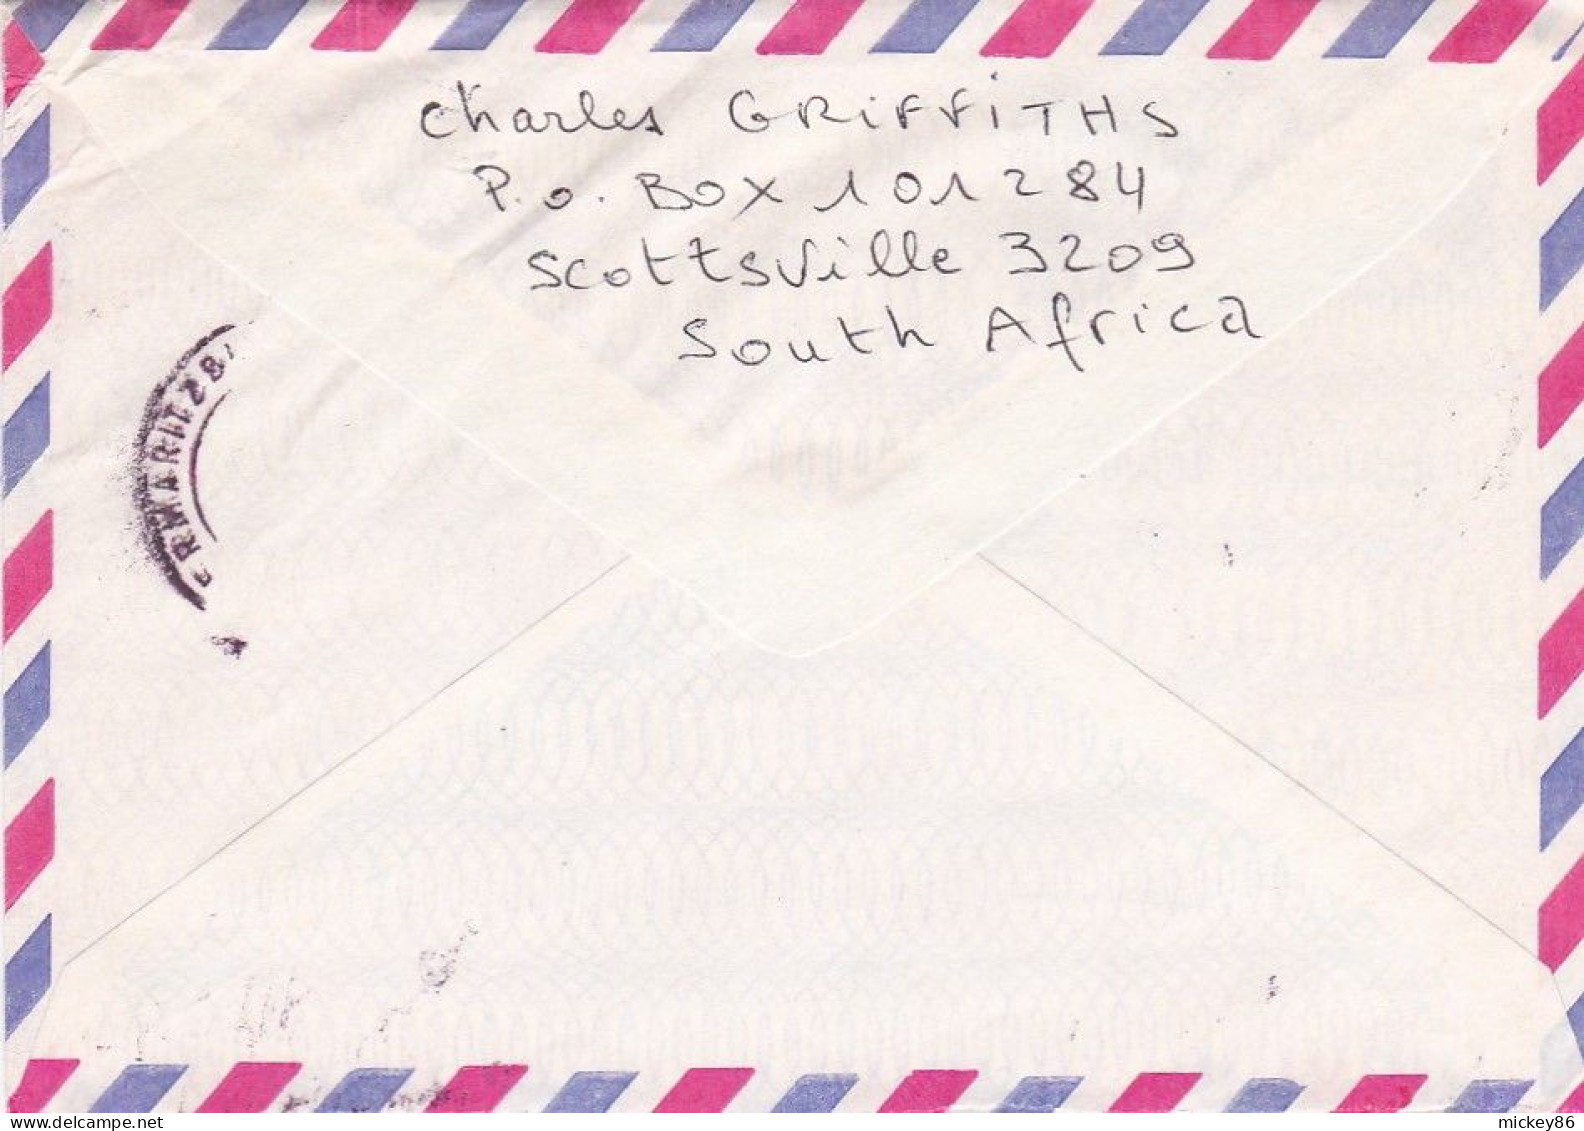 Charles GRIFFITHS
P.O. BOX 101284
Scottsville 3209
South Africa
ERMARITZB
delcampe.net
mickey86